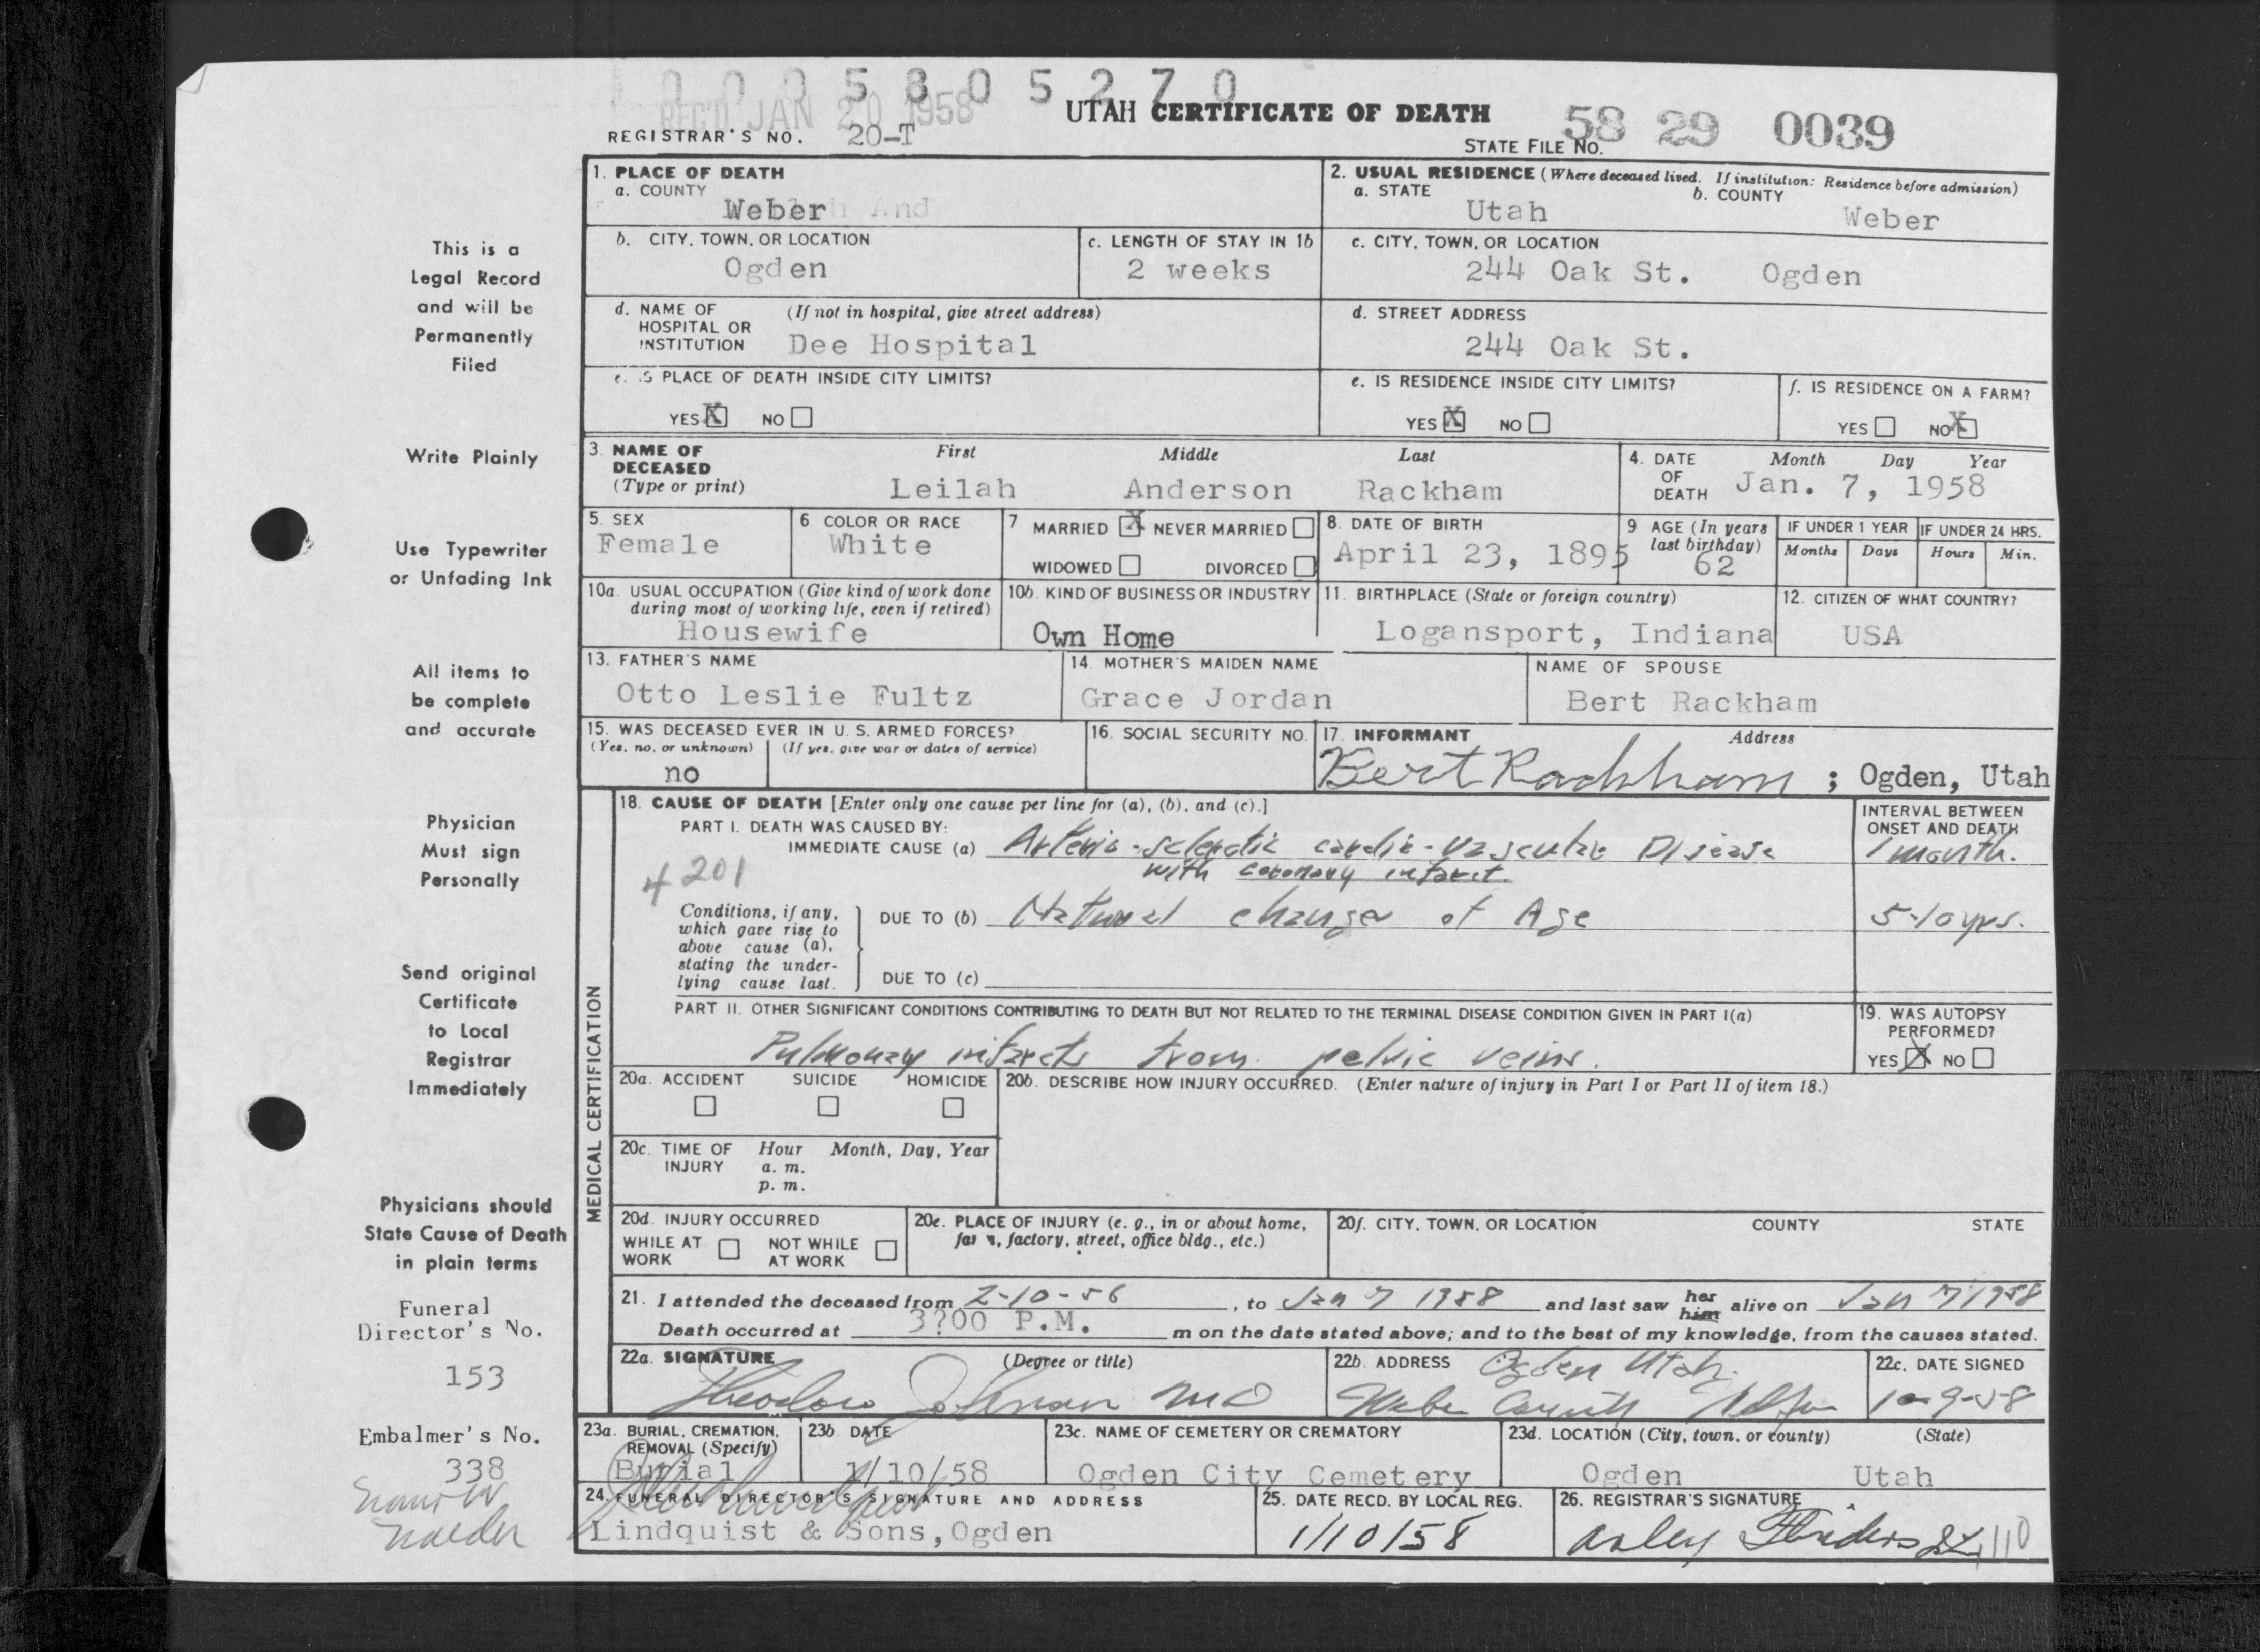 0 0 0 5 8 0 5 2 7 0
REC'D JAN 20 1958
UTAH CERTIFICATE OF DEATH
REGISTRAR'S NO. 20-T
STATE FILE NO. 58 29 0039
1. PLACE OF DEATH
a. COUNTY
Weber
2. USUAL RESIDENCE (Where deceased lived. If institution: Residence before admission)
a. STATE b. COUNTY
Utah Weber
b. CITY, TOWN, OR LOCATION
Ogden
c. LENGTH OF STAY IN 1b
2 weeks
c. CITY, TOWN, OR LOCATION
244 Oak St. Ogden
d. NAME OF HOSPITAL OR INSTITUTION (If not in hospital, give street address)
Dee Hospital
d. STREET ADDRESS
244 Oak St.
e. IS PLACE OF DEATH INSIDE CITY LIMITS?
YES X NO
e. IS RESIDENCE INSIDE CITY LIMITS?
YES X NO
f. IS RESIDENCE ON A FARM?
YES NO X
3. NAME OF DECEASED (Type or print)
First Middle Last
Leilah Anderson Rackham
4. DATE OF DEATH Month Day Year
Jan. 7, 1958
5. SEX
Female
6 COLOR OR RACE
White
7 MARRIED X NEVER MARRIED
WIDOWED DIVORCED
8. DATE OF BIRTH
April 23, 1895
9 AGE (In years last birthday)
62
IF UNDER 1 YEAR IF UNDER 24 HRS.
Months Days Hours Min.
10a. USUAL OCCUPATION (Give kind of work done during most of working life, even if retired)
Housewife
10b. KIND OF BUSINESS OR INDUSTRY
Own Home
11. BIRTHPLACE (State or foreign country)
Logansport, Indiana
12. CITIZEN OF WHAT COUNTRY?
USA
13. FATHER'S NAME
Otto Leslie Fultz
14. MOTHER'S MAIDEN NAME
Grace Jordan
NAME OF SPOUSE
Bert Rackham
15. WAS DECEASED EVER IN U. S. ARMED FORCES?
(Yes, no, or unknown) (If yes, give war or dates of service)
no
16. SOCIAL SECURITY NO.
17. INFORMANT Address
Bert Rackham ; Ogden, Utah
MEDICAL CERTIFICATION
18. CAUSE OF DEATH [Enter only one cause per line for (a), (b), and (c).]
INTERVAL BETWEEN ONSET AND DEATH
PART I. DEATH WAS CAUSED BY:
IMMEDIATE CAUSE (a) Arterio-sclerotic cardio-vascular Disease
1 month.
with coronary infarct.
4201
Conditions, if any, which gave rise to above cause (a), stating the underlying cause last.
DUE TO (b) Natural changes of Age
5-10 yrs.
DUE TO (c)
PART II. OTHER SIGNIFICANT CONDITIONS CONTRIBUTING TO DEATH BUT NOT RELATED TO THE TERMINAL DISEASE CONDITION GIVEN IN PART I(a)
Pulmonary infarcts from pelvic veins.
19. WAS AUTOPSY PERFORMED?
YES X NO
20a. ACCIDENT SUICIDE HOMICIDE
20b. DESCRIBE HOW INJURY OCCURRED. (Enter nature of injury in Part I or Part II of item 18.)
20c. TIME OF INJURY Hour Month, Day, Year
a. m.
p. m.
20d. INJURY OCCURRED
WHILE AT WORK NOT WHILE AT WORK
20e. PLACE OF INJURY (e. g., in or about home, farm, factory, street, office bldg., etc.)
20f. CITY, TOWN, OR LOCATION COUNTY STATE
21. I attended the deceased from 2-10-56, to Jan 7 1958 and last saw her him alive on Jan 7 1958
Death occurred at 3?00 P.M. m on the date stated above; and to the best of my knowledge, from the causes stated.
22a. SIGNATURE (Degree or title)
Theodore Johnson MD
22b. ADDRESS Ogden Utah.
Weber County
22c. DATE SIGNED
1-9-58
23a. BURIAL, CREMATION, REMOVAL (Specify)
Burial
23b. DATE
1/10/58
23c. NAME OF CEMETERY OR CREMATORY
Ogden City Cemetery
23d. LOCATION (City, town, or county) (State)
Ogden Utah
24. FUNERAL DIRECTOR'S SIGNATURE AND ADDRESS
Lindquist & Sons, Ogden
25. DATE RECD. BY LOCAL REG.
1/10/58
26. REGISTRAR'S SIGNATURE
This is a
Legal Record
and will be
Permanently
Filed
Write Plainly
Use Typewriter
or Unfading Ink
All items to
be complete
and accurate
Physician
Must sign
Personally
Send original
Certificate
to Local
Registrar
Immediately
Physicians should
State Cause of Death
in plain terms
Funeral
Director's No.
153
Embalmer's No.
338